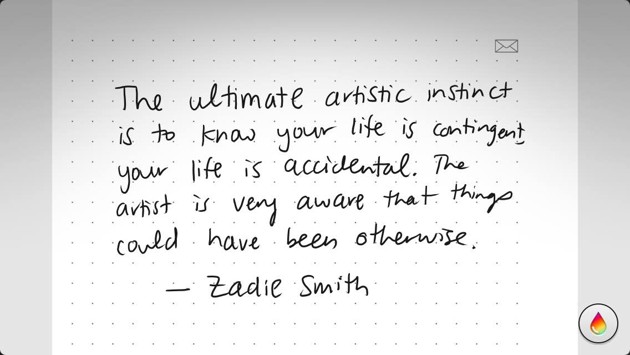 The ultimate artistic instinct
is to know your life is contingent
your life is accidental. The
artist is very aware that things
could have been otherwise.
— Zadie Smith